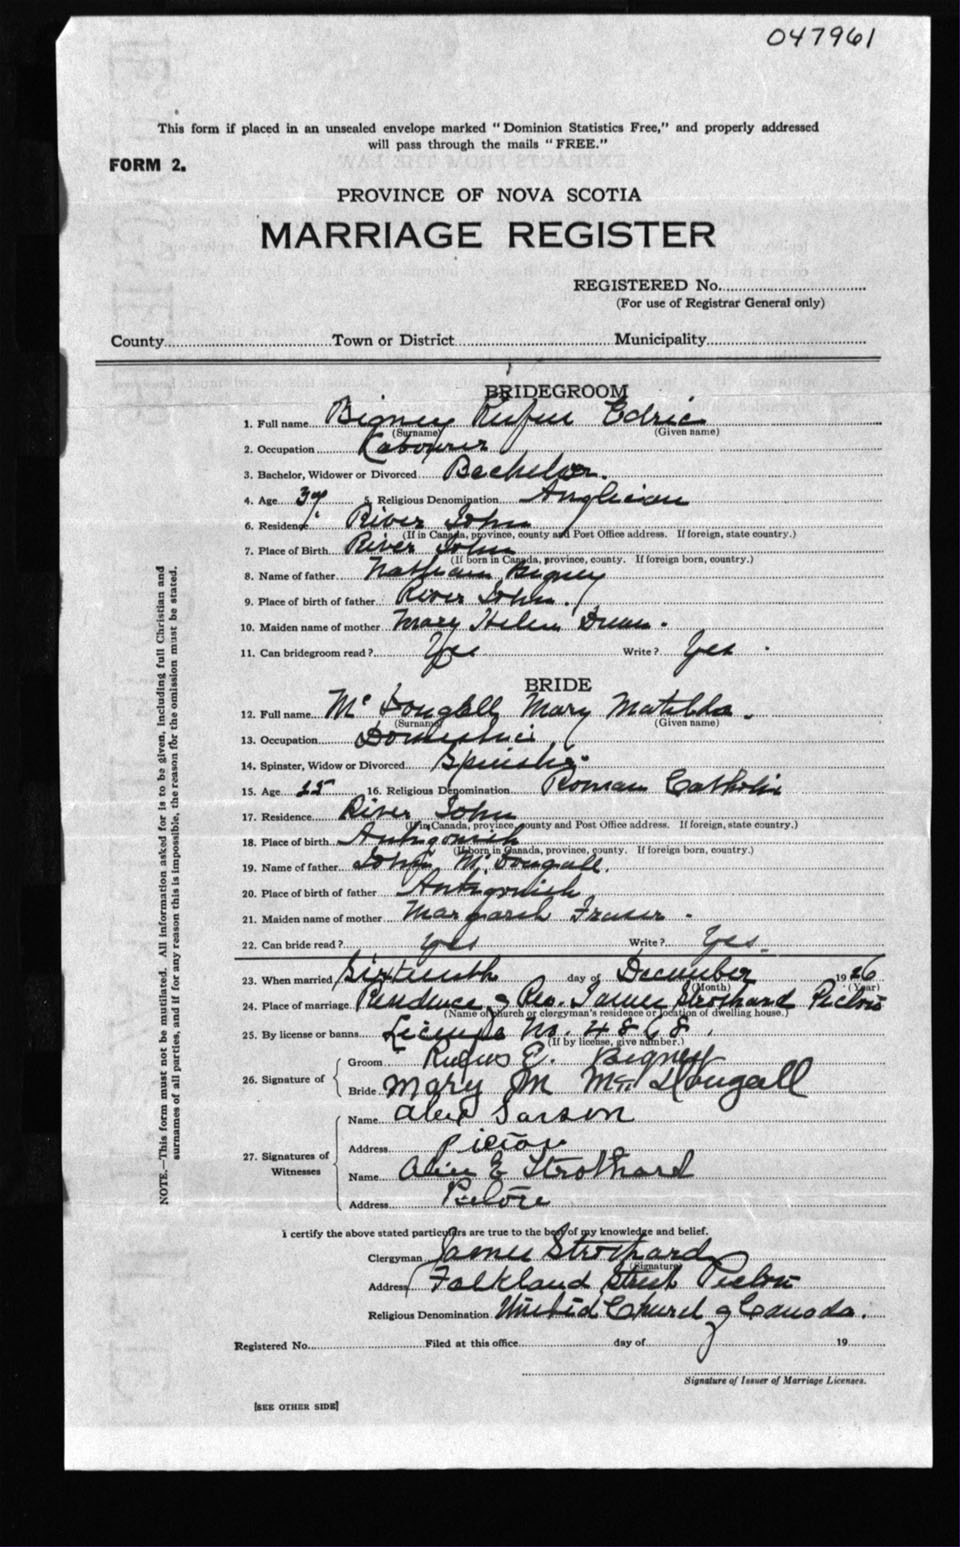 047961
This form if placed in an unsealed envelope marked "Dominion Statistics Free," and properly addressed
will pass through the mails "FREE."
FORM 2.
PROVINCE OF NOVA SCOTIA
MARRIAGE REGISTER
REGISTERED No.
(For use of Registrar General only)
County Town or District Municipality
BRIDEGROOM
1. Full name Bigney Rufus Edric
(Surname) (Given name)
2. Occupation Labourer
3. Bachelor, Widower or Divorced Bachelor.
4. Age 5. Religious Denomination Anglican
6. Residence River John
(If in Canada, province, county and Post Office address. If foreign, state country.)
7. Place of Birth River John
(If born in Canada, province, county. If foreign born, country.)
8. Name of father Nathan Bigney
9. Place of birth of father River John.
10. Maiden name of mother Mary Helen
11. Can bridegroom read? Yes Write? Yes
BRIDE
12. Full name McDougall Mary Matilda.
(Surname) (Given name)
13. Occupation Domestic
14. Spinster, Widow or Divorced Spinster
15. Age 16. Religious Denomination Roman Catholic
17. Residence River John
(If in Canada, province, county and Post Office address. If foreign, state country.)
18. Place of birth Antigonish
(If born in Canada, province, county. If foreign born, country.)
19. Name of father John McDougall.
20. Place of birth of father Antigonish
21. Maiden name of mother Margaret Fraser.
22. Can bride read? Yes Write? Yes.
23. When married Sixteenth day of December 1926
(Month) (Year)
24. Place of marriage Residence of Rev. James Strothard Pictou
(Name of church or clergyman's residence or location of dwelling house.)
25. By license or banns License No. 4868.
(If by license, give number.)
26. Signature of
Groom Rufus E. Bigney
Bride Mary M McDougall
27. Signatures of Witnesses
Name Alex Sarson
Address Pictou
Name E Strothard
Address Pictou
I certify the above stated particulars are true to the best of my knowledge and belief.
Clergyman James Strothard
(Signature)
Address Falkland Street Pictou
Religious Denomination United Church of Canada.
Registered No. Filed at this office day of 19
Signature of Issuer of Marriage Licenses.
[SEE OTHER SIDE]
NOTE.—This form must not be mutilated. All information asked for is to be given, including full Christian and
surnames of all parties, and if for any reason this is impossible, the reason for the omission must be stated.